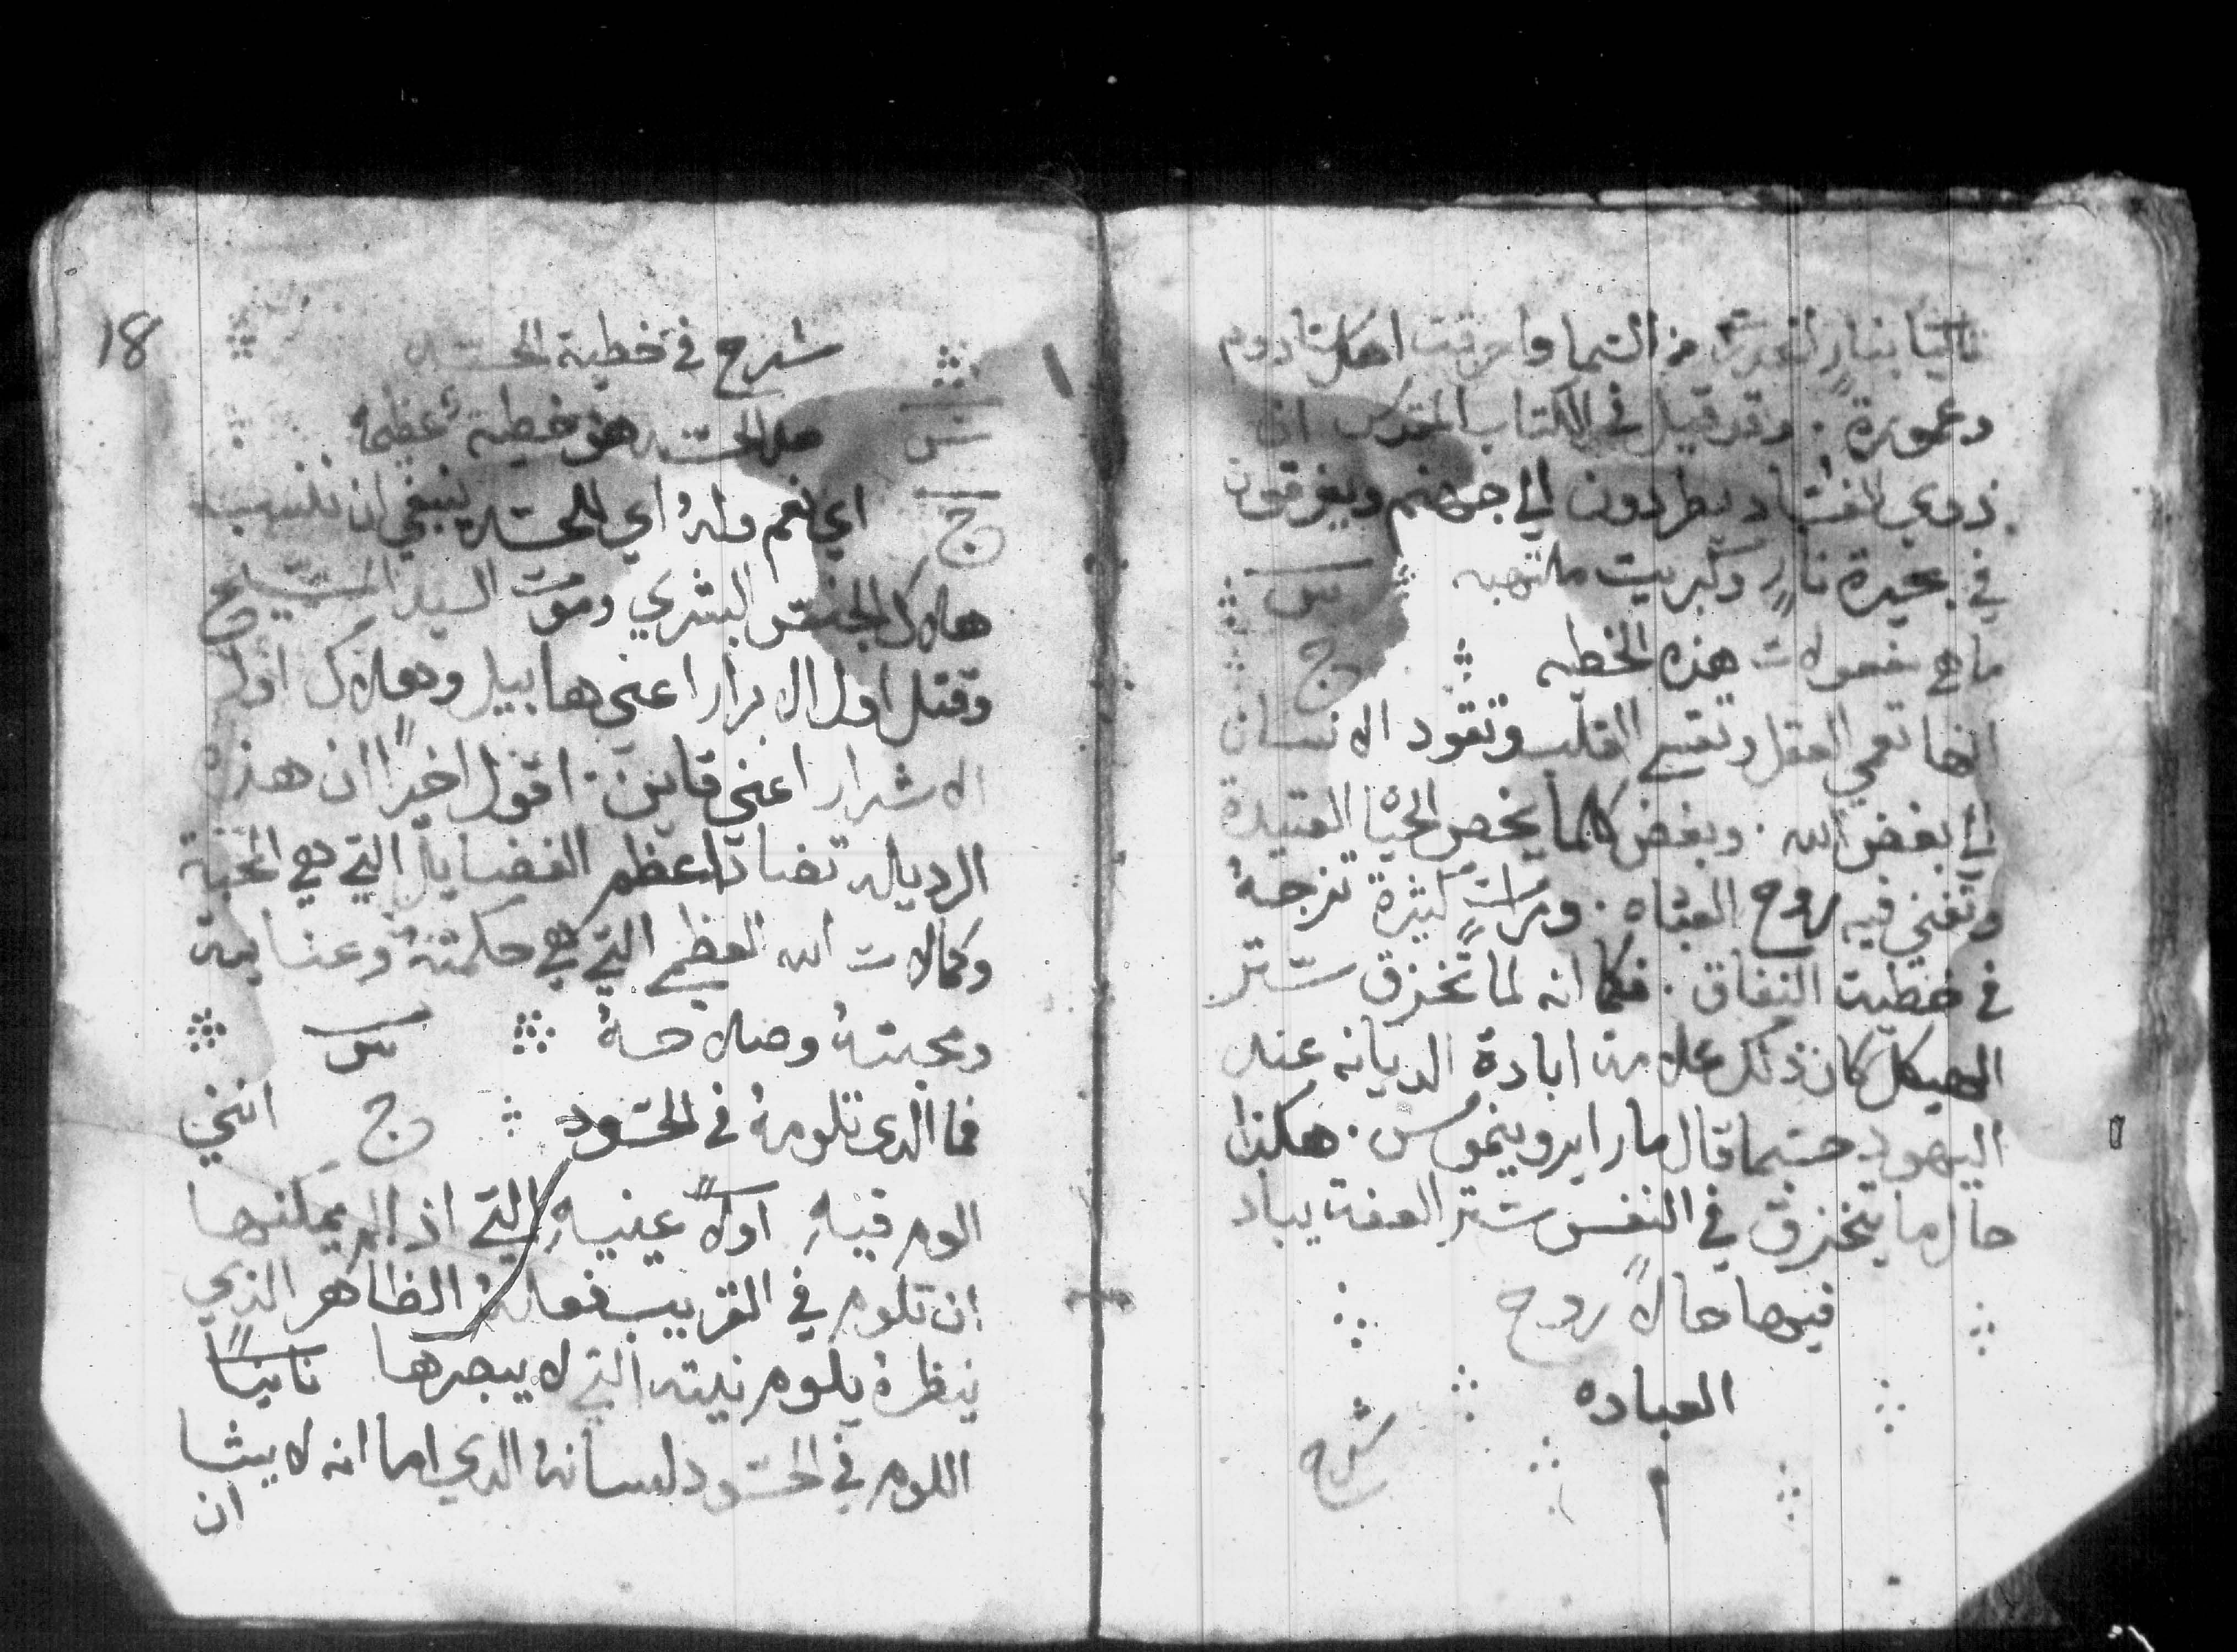 ثانيا بنار انحدرت من السما واحرقت اهل سادوم
وعمورة. وقد قيل في الكتاب المقدس ان
ذوي الفساد يطردون الي جهنم ويغرقون
في بحيرة نار وكبريت ملتهبه س
ما هي مفعولات هذه الخطيه ج
انها تعمي العقل وتقسي القلب وتقود الانسان
الي بغض الله. وبغض كلما يخص الحياه العتيدة
وتفني فيه روح العباده. ومرات كثيرة تزجهُ
في خطية النفاق. فكما انه لما تخزق ستر
الهيكل كان ذلك علامة ابادة الديانه عند
اليهود حسبما قال مار ايرونيموس. هكذا
حال ما يتخزق في النفس ستر العفة يباد
فيها حالاً روح
العباده
شرح
18
شرح في خطية الحسد
س هل الحسد هو خطية عظيمه
ج اي نعم ولهُ اي للحسد ينبغي ان ننسب
هلاك الجنس البشري وموت السيد المسيح
وقتل اول الابرار اعني هابيل وهلاك اول
الاشرار اعني قاين. اقول اخيراً ان هذه
الرديله تضاد اعظم الفضايل التي هي المحبة
وكمالات الله العظيم التي هي حكمتهُ وعنايته
ومحبتهُ وصلاحهُ س
فما الذي تلومهُ في الحسود ج انني
الوم فيهِ اولاً عينيهِ التي اذ لم يمكنها
ان تلوم في القريب فعلهُ الظاهر الذي
ينظرهُ يلوم نيته التي لا يبصرها ثانياً
اللوم في الحسود لسانهُ الدي اما انه لا يشا
ان